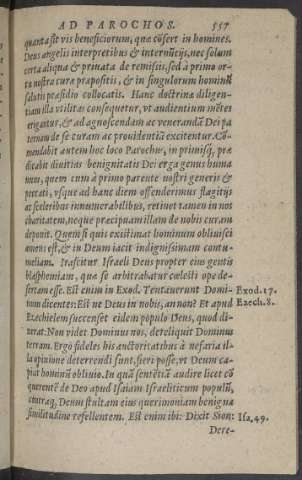 AD PAROCHOS. 557
quanta sit vis beneficiorum, quæ cōfert in homines.
Deus angelis interpretibus & internūcijs, nec solum
certa aliqua & priuata de re missis, sed à primo or-
tu nostra curæ præpositis, & in singulorum hominū
salutis præsidio collocatis. Hanc doctrinæ diligen-
tiam illa vtilitas consequetur, vt audientium mētes
erigantur, & ad agnoscendam ac venerandā Dei pa
ternam de se curam ac prouidentiā excitentur. Cō-
mendabit autem hoc loco Parochus, in primisq́, præ
dicabit diuitias benignitatis Dei erga genus huma
num, quem cum à primo parente nostri generis &
peccati, vsque ad hanc diem offenderimus flagitijs
ac sceleribus innumerabilibus, retinet tamen in nos
charitatem, neque præcipuam illam de nobis curam
deponit. Quem si quis existimat hominum obliuisci
amens est, & in Deum iacit indignissimam contu-
meliam. Irascitur Israeli Deus propter eius gentis
blasphemiam, quæ se arbitrabatur cœlesti ope de-
sertam esse. Est enim in Exod. Tentauerunt Domi- Exod. 17.
num dicentes: Est ne Deus in nobis, an non? Et apud Ezech. 8.
Ezechielem succenset eidem populo Deus, quod di-
xerat: Non videt Dominus nos, dereliquit Dominus
terram. Ergo fideles his auctoritatibus à nefaria il-
la opinione deterrendi sunt, fieri posse, vt Deum ca-
piat hominū obliuio. In quā sentētiā audire licet cō
querentē de Deo apud Isaiam Israeliticum populū,
contraq́, Deum stultam eius querimoniam benigna
similitudine refellentem. Est enim ibi: Dixit Sion: Isa. 49.
Dere-